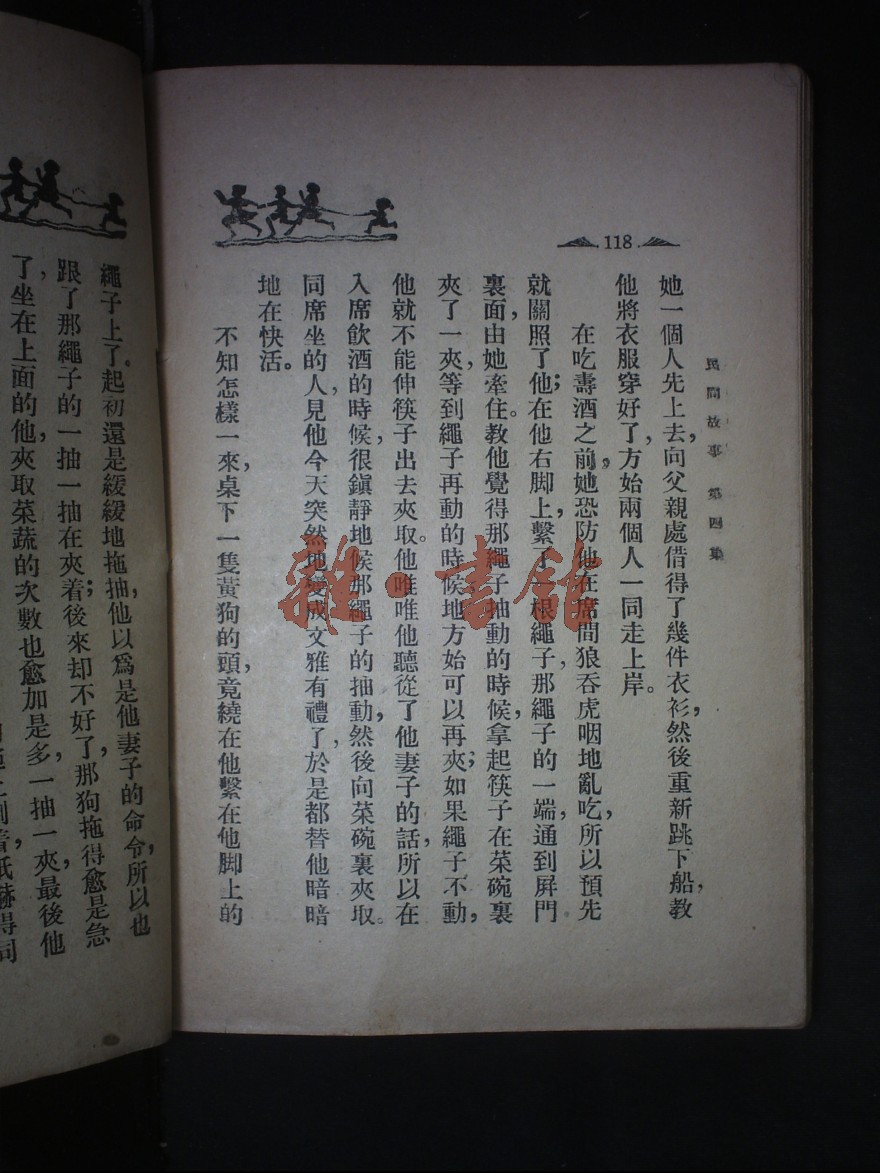 118
民間故事 第四集
她一個人先上去，向父親處借得了幾件衣衫，然後重新跳下船，教
他將衣服穿好了，方始兩個人一同走上岸。
在吃壽酒之前，她恐防他在席間狼吞虎咽地亂吃，所以預先
就關照了他；在他右脚上，繫了一根繩子，那繩子的一端，通到屏門
裏面，由她牽住。教他覺得那繩子抽動的時候，拿起筷子在菜碗裏
夾了一夾，等到繩子再動的時候，地方始可以再夾；如果繩子不動，
他就不能伸筷子出去夾取。他唯唯他聽從了他妻子的話，所以在
入席飲酒的時候，很鎮靜地候那繩子的抽動，然後向菜碗裏夾取。
同席坐的人，見他今天突然地變成文雅有禮了，於是都替他暗暗
地在快活。
不知怎樣一來，桌下一隻黃狗的頭，竟繞在他繫在他脚上的
繩子上了。起初還是緩緩地拖抽，他以爲是他妻子的命令，所以也
跟了那繩子的一抽一抽在夾着；後來却不好了，那狗拖得愈是急
了，坐在上面的他，夾取菜蔬的次數也愈加是多，一抽一夾，最後他
雜·書館